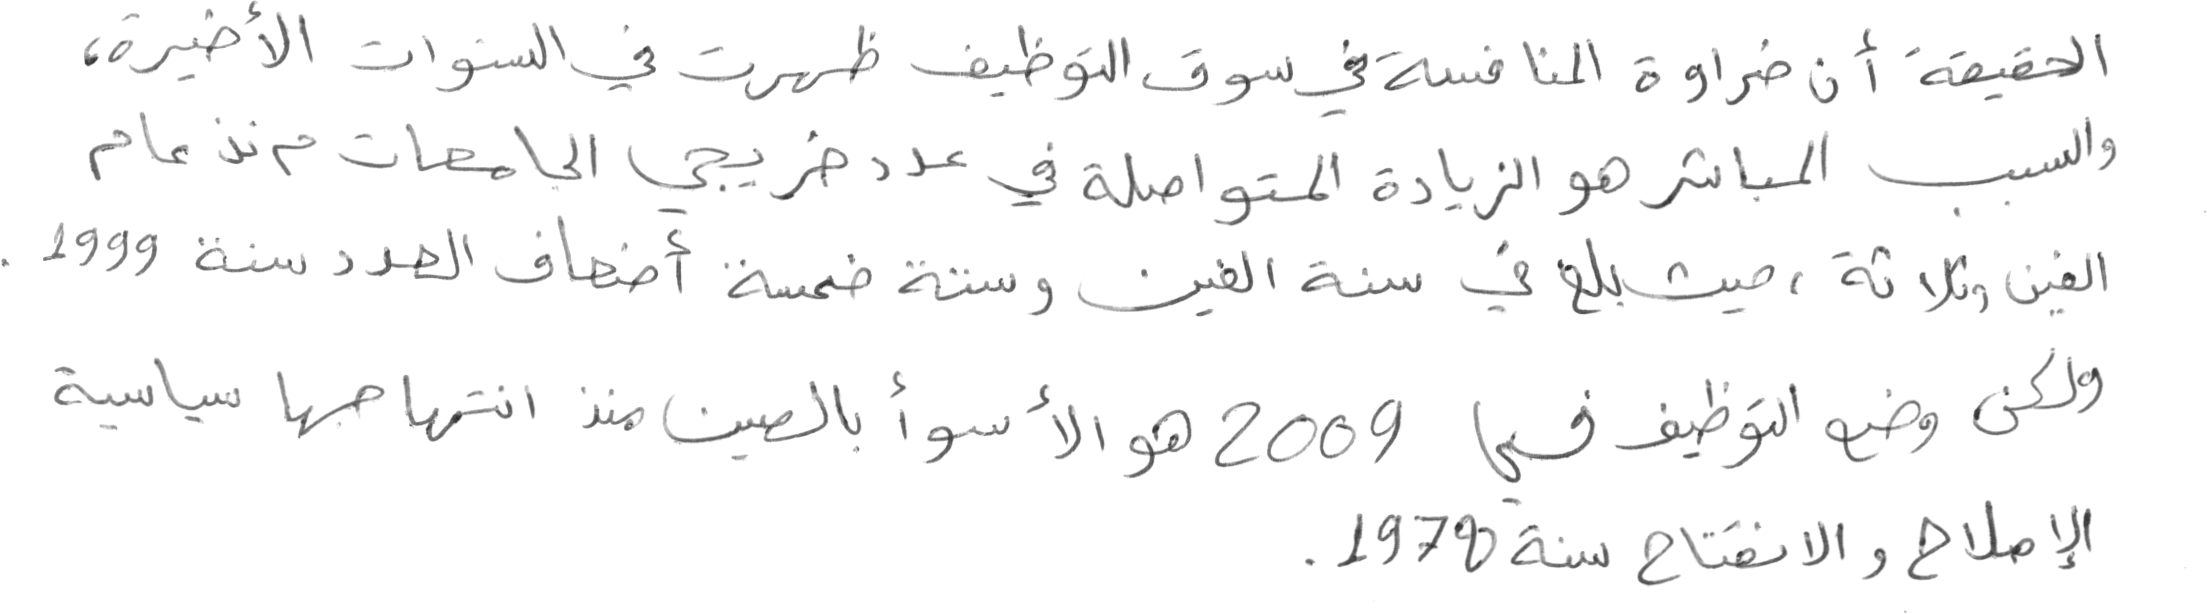 الحقيقة أن ضراوة المنافسة في سوق التوظيف ظهرت في السنوات الأخيرة،
والسبب المباشر هو الزيادة المتواصلة في عدد خريجي الجامعات منذ عام
الفين وثلاثة ، حيث بلغ في سنة الفين وستة خمسة أضعاف العدد سنة 1999 .
ولكن وضع التوظيف في 2009 هو الأسوأ بالصين منذ انتهاجها سياسية
الإصلاح والانفتاح سنة 1978 .